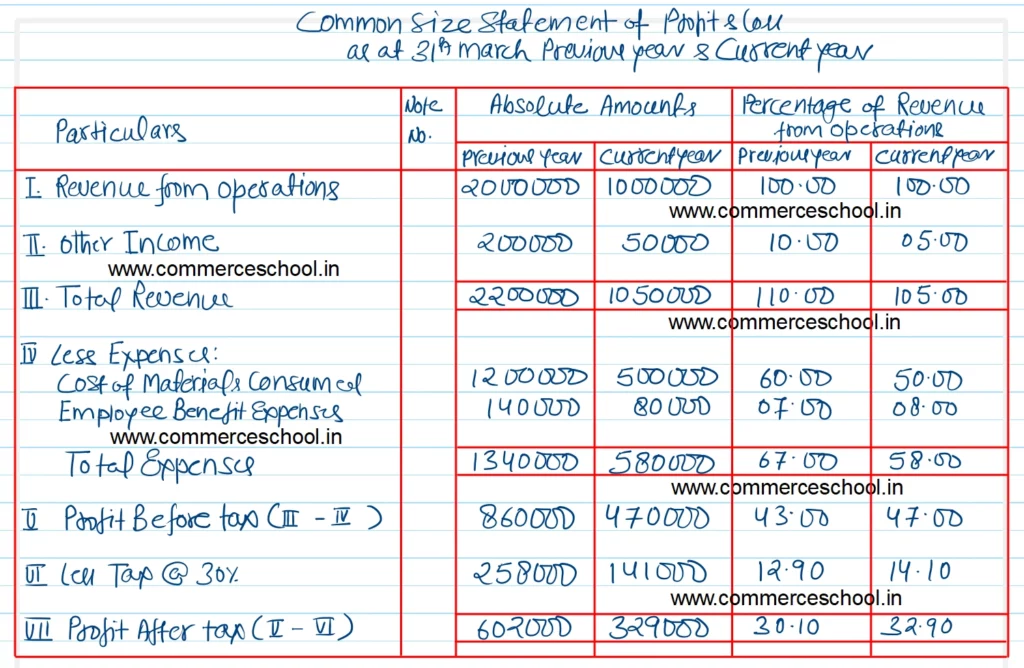 Common Size Statement of Profit & Loss
as at 31st March Previous year & Current year
Particulars Note No. Absolute Amounts Percentage of Revenue from operations
Previous Year Current year Previous year Current year
I. Revenue from operations 2000000 1000000 100.00 100.00
www.commerceschool.in
II. Other Income 200000 50000 10.00 05.00
www.commerceschool.in
III. Total Revenue 2200000 1050000 110.00 105.00
www.commerceschool.in
IV Less Expenses:
Cost of Materials Consumed 1200000 500000 60.00 50.00
Employee Benefit Expenses 140000 80000 07.00 08.00
www.commerceschool.in
Total Expenses 1340000 580000 67.00 58.00
www.commerceschool.in
V Profit Before tax (III - IV) 860000 470000 43.00 47.00
VI Less Tax @ 30% 258000 141000 12.90 14.10
www.commerceschool.in
VII Profit After tax (V - VI) 602000 329000 30.10 32.90